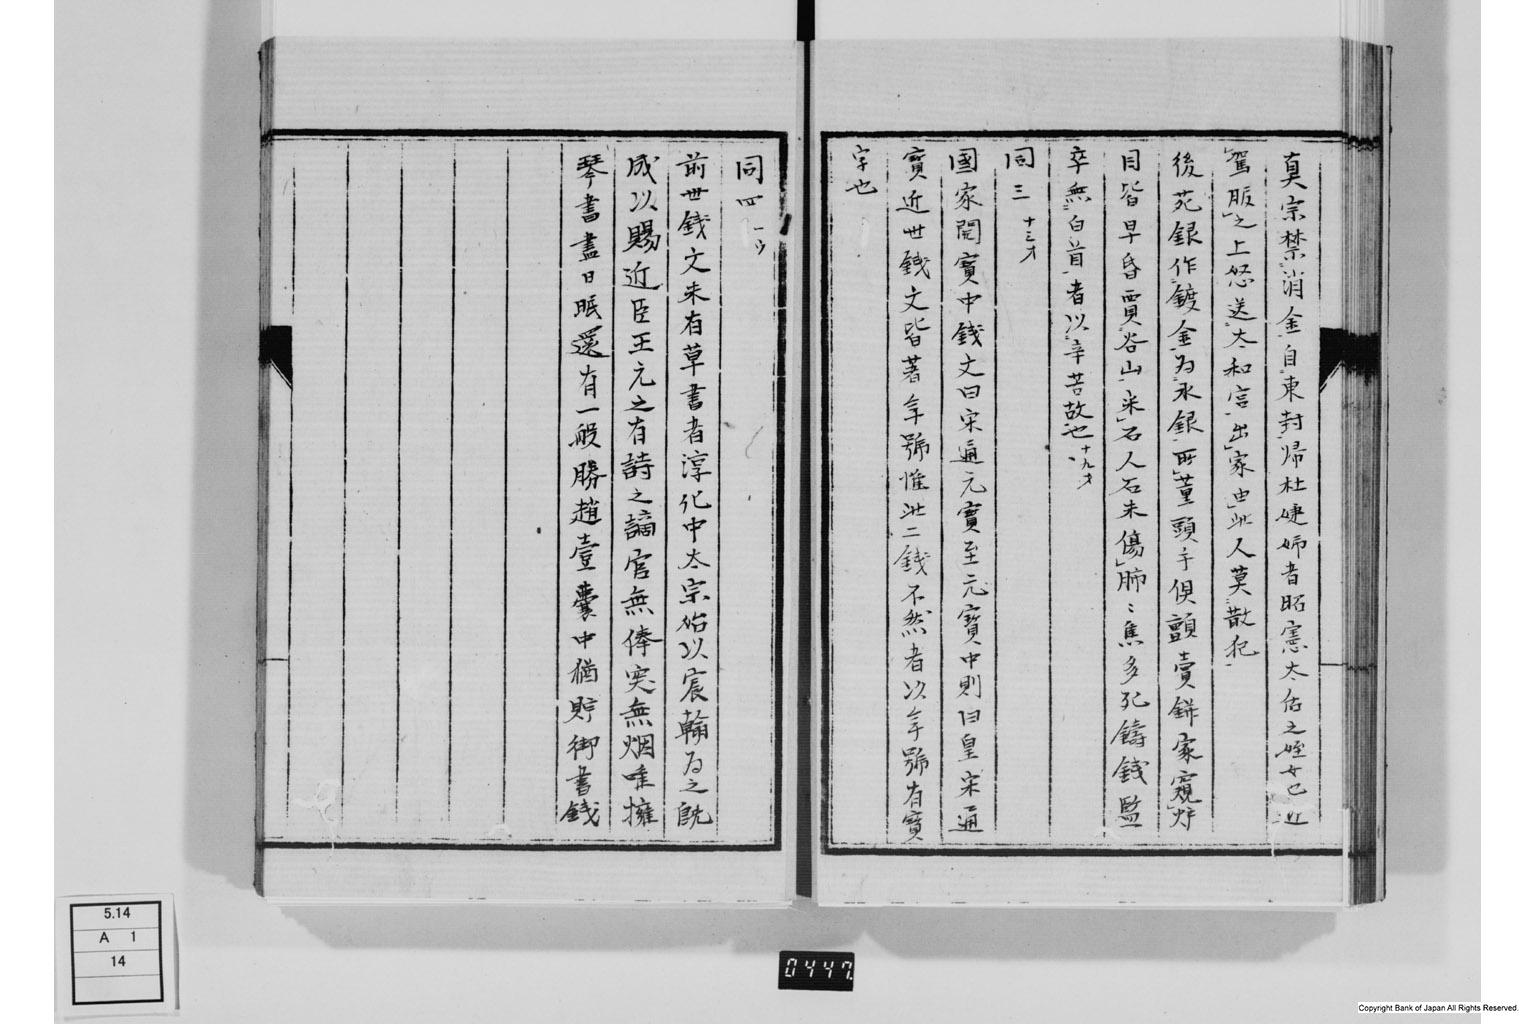 真宗禁消金自東封帰杜婕妤者昭憲太后之姪女也近
駕服之上怒送太和宮出家由此人莫敢犯
後苑銀作鍍金為水銀所薫頭手倶顫賣餅家窺炉
目皆早昏賈谷山采石人石末傷肺〻焦多死鋳銭監
卒無白首者以辛苦故也 十九才
同三 十三才
國家開寳中銭文曰宋通元寳至元寳中則曰皇宋通
寳近世銭文皆著年號惟此二銭不然者以年號有寳
字也
同四 一ウ
前世銭文未有草書者淳化中太宗始以宸翰為之既
成以賜近臣王元之有詩之謫官無俸突無烟唯擁
琴書盡日眠還有一般勝趙壹嚢中猶貯御書銭
5.14
A 1
14
0447
Copyright Bank of Japan All Rights Reserved.